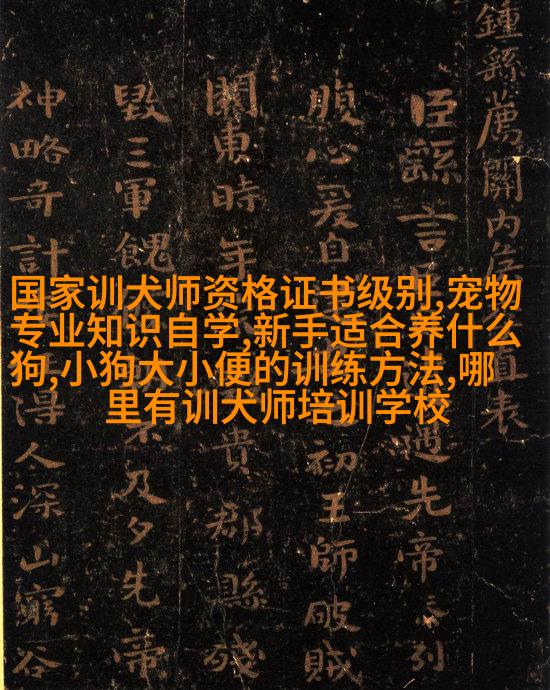 国家训犬师资格证书级别,宠物
专业知识自学,新手适合养什么
狗,小狗大小便的训练方法,哪
里有训犬师培训学校
鍾繇薦關内侯直表
臣繇言先帝忝列
腹心爰自初王師破賊
關東時年貴郡縣殘
毀三軍餽不及夕先帝
神略奇計得人深山窮谷